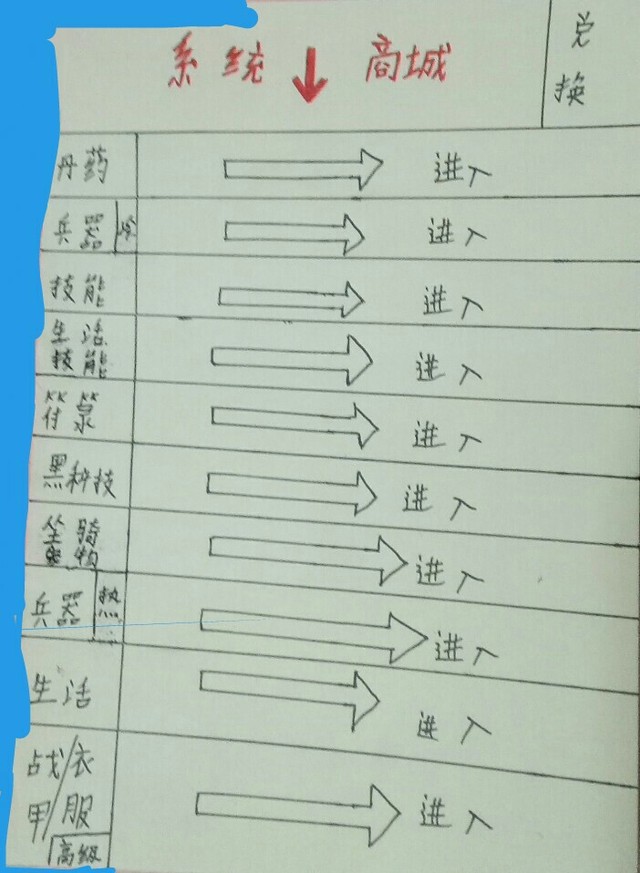 系统 商城
兑换
丹药 进入
兵器 冷 进入
技能 进入
生活技能 进入
符箓 进入
黑科技 进入
坐骑宠物 进入
兵器 热 进入
生活 进入
战甲/衣服 高级 进入